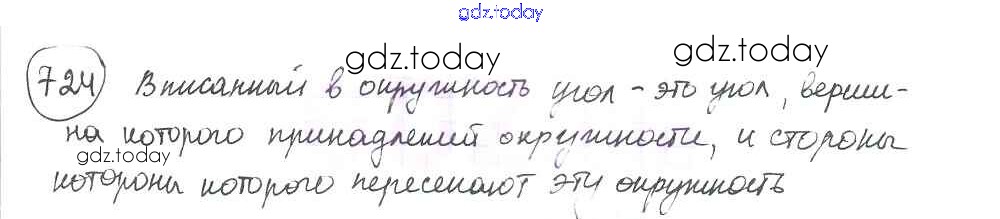 gdz.today
gdz.today gdz.today
724 Вписанный в окружность угол - это угол, верши-
на которого принадлежит окружности, и стороны
gdz.today
которого пересекают эту окружность